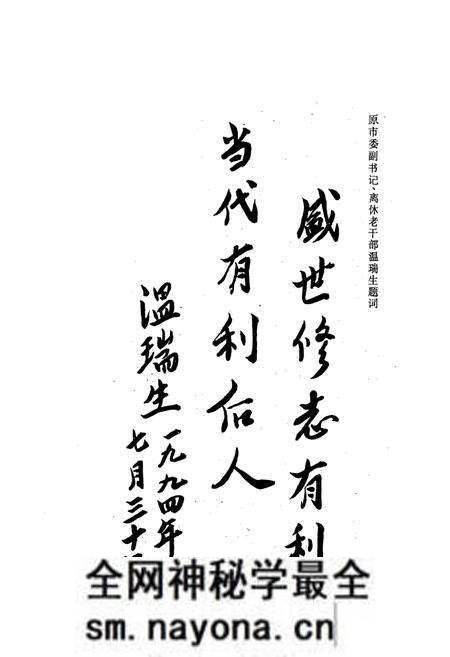 原市委副书记、离休老干部温瑞生题词
盛世修志有利
当代有利后人
温瑞生
一九九四年
七月三十
全网神秘学最全
sm.nayona.cn